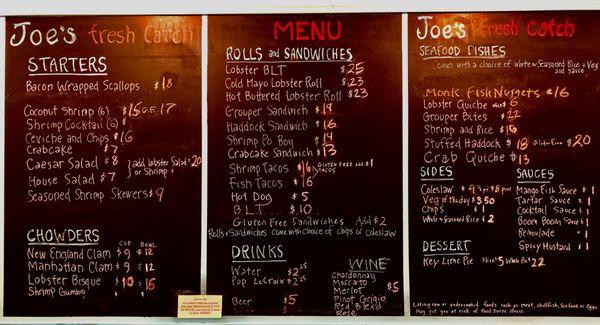 Joe's fresh Catch
STARTERS
Bacon Wrapped Scallops $18
Coconut Shrimp (6) $15 G.F. 17
Shrimp Cocktail (6) $
Ceviche and Chips $16
Crabcake $7
Caesar Salad $8
House Salad $7
add lobster Salad $20
or Shrimp
Seasoned Shrimp Skewers $9
CHOWDERS
CUP BOWL
New England Clam $9 $12
Manhattan Clam $9 $12
Lobster Bisque $10 $16
Shrimp Gumbo
MENU
ROLLS and SANDWICHES
Lobster BLT $25
Cold Mayo Lobster Roll $23
Hot Buttered Lobster Roll $23
Grouper Sandwich $19
Haddock Sandwich $16
Shrimp Po Boy $14
Crabcake Sandwich $13
Shrimp Tacos $16 GLUTEN FREE ADD $1
Fish Tacos $16 TACOS
Hot Dog $5
BLT $10
Gluten Free Sandwiches Add $2
Rolls + Sandwiches come with choice of chips or coleslaw
DRINKS
Water $2
Pop LaCroix $2
Beer $5
WINE
Chardonnay
Moscato
Merlot $5
Pinot Grigio
Red Blend
Rose
Joe's Fresh Catch
SEAFOOD DISHES
Comes with a choice of white or Seasoned Rice + Veg
and sauce
Monk Fish Nuggets $16
Lobster Quiche 6
Grouper Bites $22
Shrimp and Rice $16
Stuffed Haddock $18 Gluten Free $20
Crab Quiche $13
SIDES
Coleslaw
Veg of the day $3.50
Chips $1
White or Seasoned Rice $2
SAUCES
Mango Fish Sauce $1
Tartar Sauce $1
Cocktail Sauce $1
Boom Boom Sauce $1
Remoulade $1
Spicy Mustard $1
DESSERT
Key Lime Pie Slice $5 Whole Pie $22
Eating raw or undercooked foods such as meat, shellfish, Seafood or Eggs
may put you at risk of food borne illness.